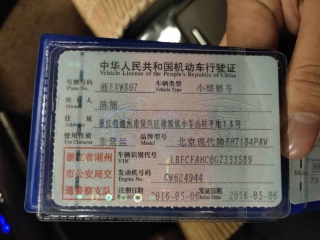 中华人民共和国机动车行驶证
Vehicle License of the People's Republic of China
号牌号码 浙EXW807 车辆类型 小型轿车
Plate No. Vehicle Type
所有人 陈丽
Owner
住址
Address
使用性质 非营运 品牌型号 北京现代牌BH7184PAW
Use Character Model
浙江省湖州 车辆识别代号
市公安局交 VIN
通警察支队 发动机号码 CW624944
Engine No.
注册日期 2016-05-06 发证日期 2016-05-06